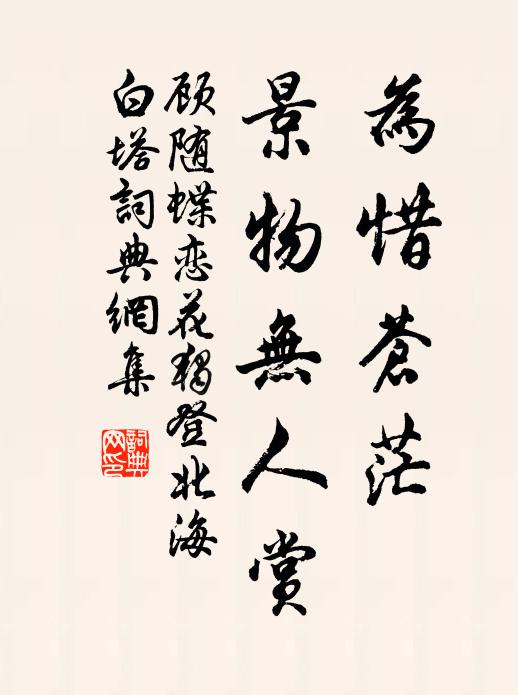 為惜蒼茫
景物無人賞
顾随蝶恋花獨登北海
白塔詞典網集
詞典
网印